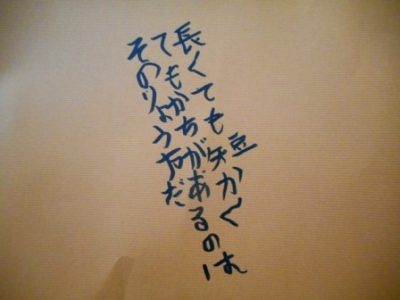 長くても短かく
てもかちがあるのは
そのりょう方だ